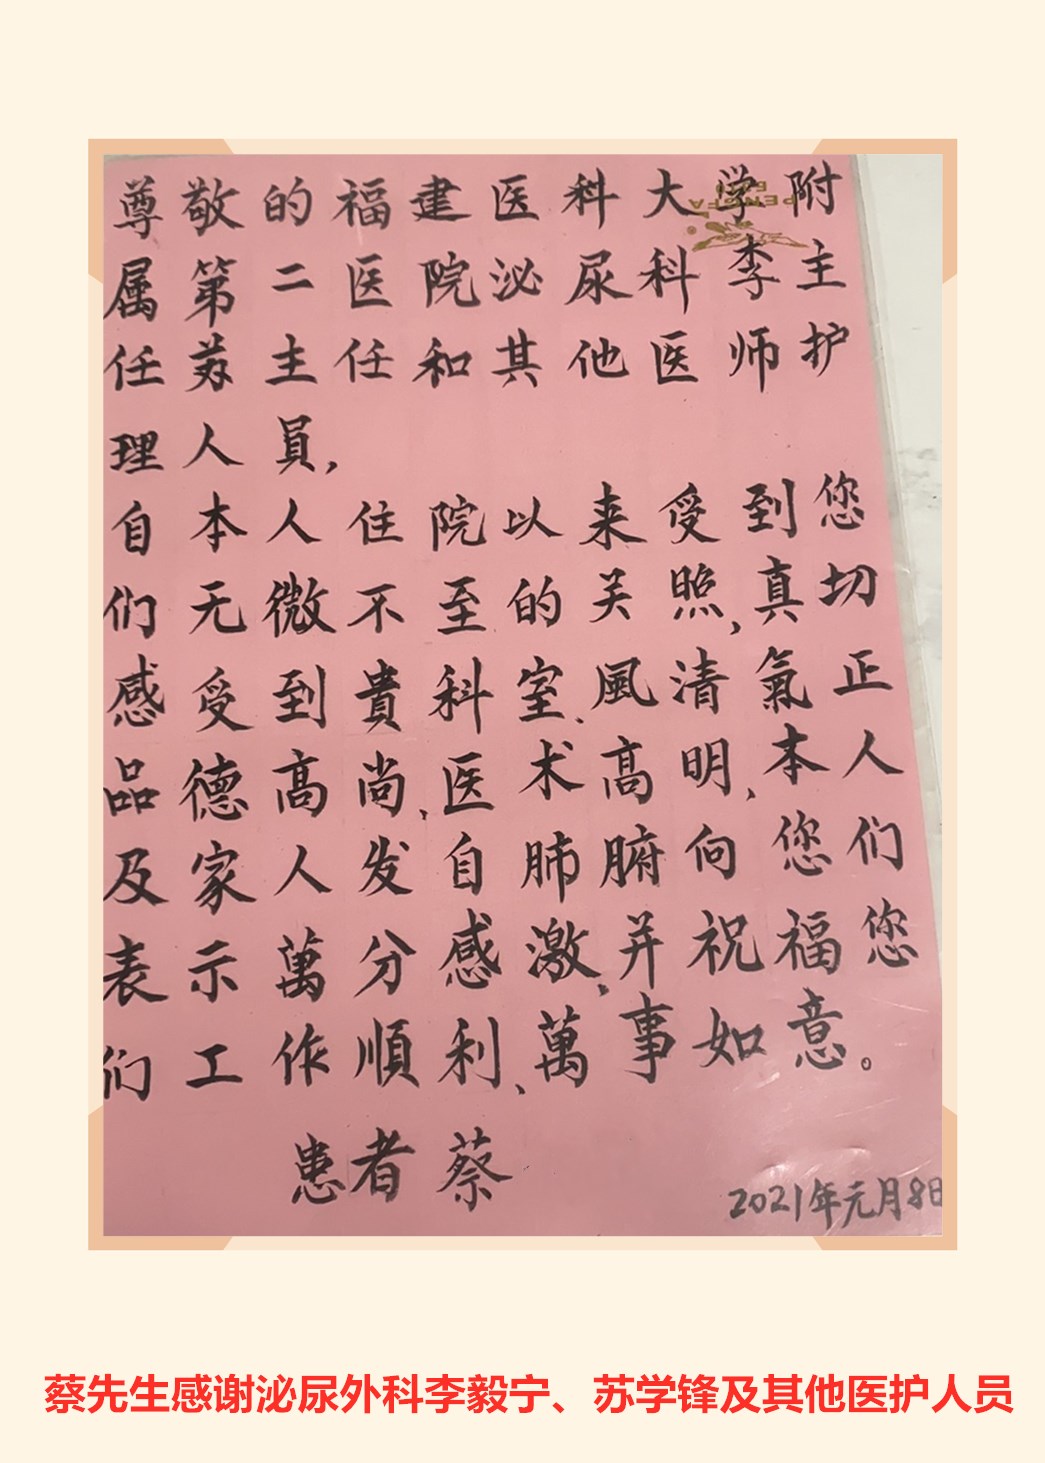 尊敬的福建医科大学附
属第二医院泌尿科李主
任苏主任和其他医师护
理人員,
自本人住院以来受到您
们无微不至的关照,真切
感受到貴科室、風清氣正
品德高尚,医术高明,本人
及家人发自肺腑向您们
表示萬分感激,并祝福您
们工作順利、萬事如意。
患者蔡
2021年元月8日
PENGFA
蔡先生感谢泌尿外科李毅宁、苏学锋及其他医护人员